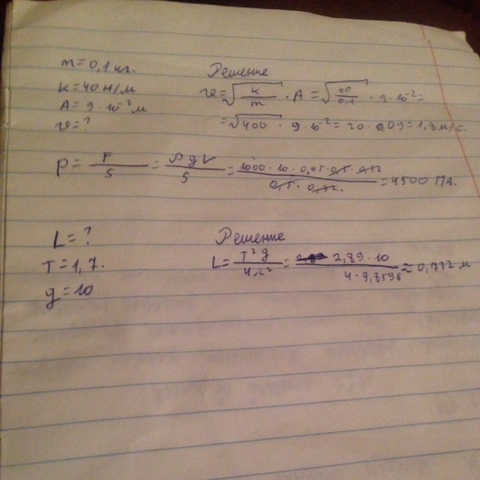 m = 0,1 кг.
K = 40 н/м
A = 9·10⁻² м
v = ?
Решение
v = √(K/m) · A = √(40/0,1) · 9·10⁻² =
= √400 · 9·10⁻² = 20 · 0,09 = 1,8 м/с.
P = F/S = ρgV/S = (1000 · 10 · 0,45 · 0,5 · 0,12)/(0,5 · 0,12) = 4500 Па.
L = ?
T = 1,7.
g = 10
Решение
L = T²g/4π² = 2,89 · 10/4 · 9,8596 ≈ 0,732 м